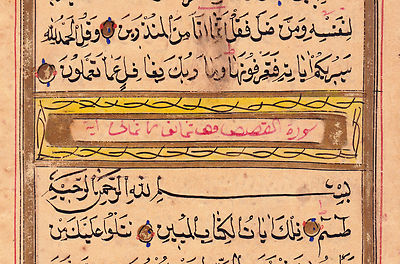 لِنَفْسِهِ وَمَنْ ضَلَّ فَقُلْ إِنَّمَا أَنَا مِنَ الْمُنْذِرِينَ وَقُلِ الْحَمْدُ لِلَّهِ
سَيُرِيكُمْ آيَاتِهِ فَتَعْرِفُونَهَا وَمَا رَبُّكَ بِغَافِلٍ عَمَّا تَعْمَلُونَ
سورة القصص وهي ثمان و ثمانون آية
بِسْمِ اللَّهِ الرَّحْمَنِ الرَّحِيمِ
طسم تِلْكَ آيَاتُ الْكِتَابِ الْمُبِينِ نَتْلُوا عَلَيْكَ مِنْ